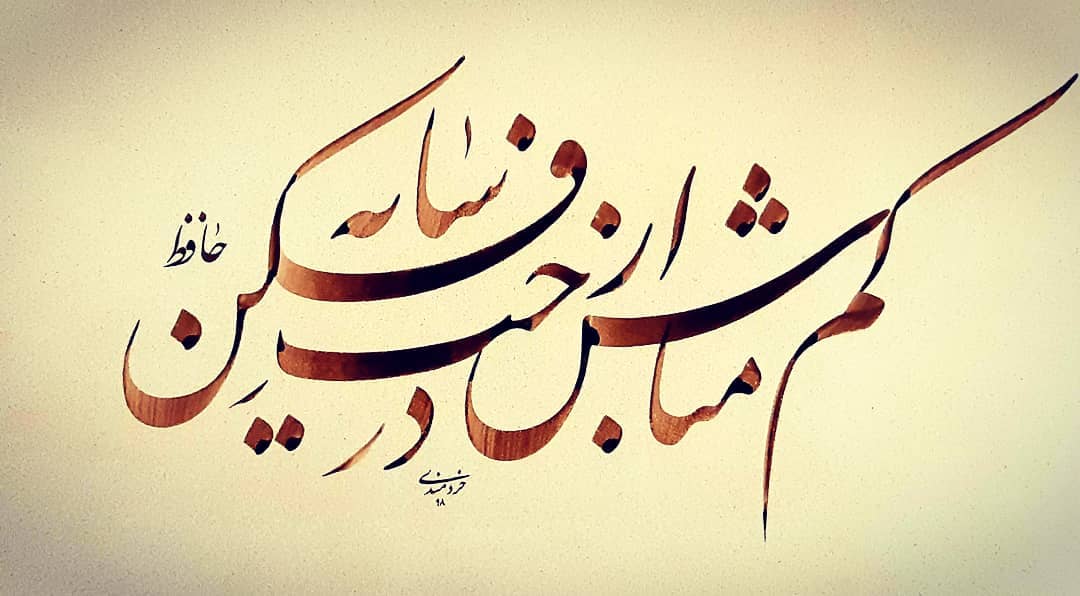 کم مباش از درخت سایه فکن
حافظ
خردمندی
۹۸